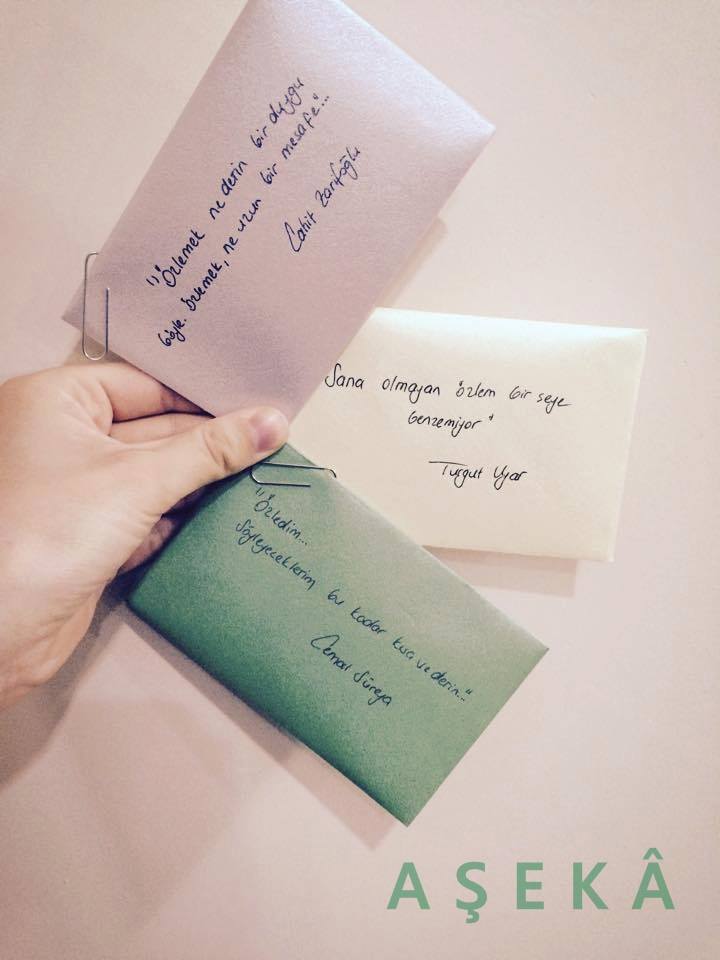 "Özlemek ne derin bir duygu
böyle. Özlemek, ne uzun bir mesafe"...
Cahit Zarifoğlu
Sana olmayan "özlem bir şeye
benzemiyor"
Turgut Uyar
"Özledim...
Söyleyeceklerim bu kadar kısa ve derin..."
Cemal Süreya
AŞEKÂ